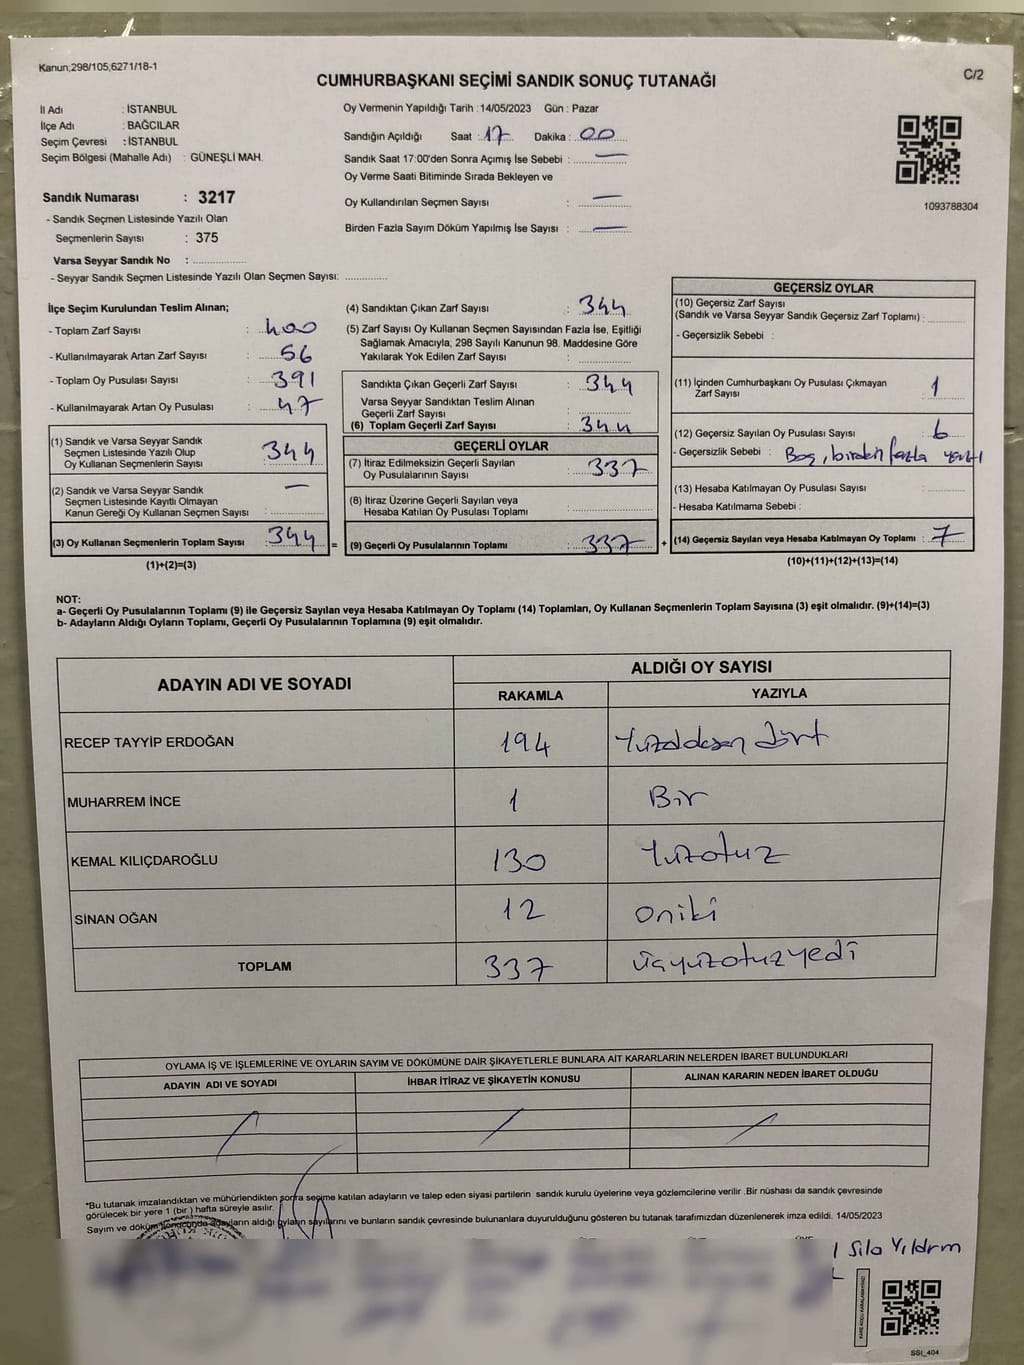 Kanun;298/105;6271/18-1
C/2
CUMHURBAŞKANI SEÇİMİ SANDIK SONUÇ TUTANAĞI
İl Adı : İSTANBUL
İlçe Adı : BAĞCILAR
Seçim Çevresi : İSTANBUL
Seçim Bölgesi (Mahalle Adı) : GÜNEŞLİ MAH.
Sandık Numarası : 3217
- Sandık Seçmen Listesinde Yazılı Olan
Seçmenlerin Sayısı : 375
Varsa Seyyar Sandık No :
- Seyyar Sandık Seçmen Listesinde Yazılı Olan Seçmen Sayısı:
Oy Vermenin Yapıldığı Tarih : 14/05/2023 Gün : Pazar
Sandığın Açıldığı Saat : 17 Dakika : 00
Sandık Saat 17:00'den Sonra Açımış İse Sebebi : —
Oy Verme Saati Bitiminde Sırada Bekleyen ve
Oy Kullandırılan Seçmen Sayısı : —
Birden Fazla Sayım Döküm Yapılmış İse Sayısı : —
1093788304
İlçe Seçim Kurulundan Teslim Alınan;
- Toplam Zarf Sayısı : 400
- Kullanılmayarak Artan Zarf Sayısı : 56
- Toplam Oy Pusulası Sayısı : 391
- Kullanılmayarak Artan Oy Pusulası : 47
(1) Sandık ve Varsa Seyyar Sandık
Seçmen Listesinde Yazılı Olup
Oy Kullanan Seçmenlerin Sayısı 344
(2) Sandık ve Varsa Seyyar Sandık
Seçmen Listesinde Kayıtlı Olmayan
Kanun Gereği Oy Kullanan Seçmen Sayısı : —
(3) Oy Kullanan Seçmenlerin Toplam Sayısı : 344 =
(1)+(2)=(3)
(4) Sandıktan Çıkan Zarf Sayısı : 344
(5) Zarf Sayısı Oy Kullanan Seçmen Sayısından Fazla İse, Eşitliği
Sağlamak Amacıyla, 298 Sayılı Kanunun 98. Maddesine Göre
Yakılarak Yok Edilen Zarf Sayısı :
Sandıkta Çıkan Geçerli Zarf Sayısı : 344
Varsa Seyyar Sandıktan Teslim Alınan
Geçerli Zarf Sayısı :
(6) Toplam Geçerli Zarf Sayısı : 344
GEÇERLİ OYLAR
(7) İtiraz Edilmeksizin Geçerli Sayılan
Oy Pusulalarının Sayısı : 337
(8) İtiraz Üzerine Geçerli Sayılan veya
Hesaba Katılan Oy Pusulaları Toplamı :
(9) Geçerli Oy Pusulalarının Toplamı : 337 +
GEÇERSİZ OYLAR
(10) Geçersiz Zarf Sayısı
(Sandık ve Varsa Seyyar Sandık Geçersiz Zarf Toplamı) :
- Geçersizlik Sebebi :
(11) İçinden Cumhurbaşkanı Oy Pusulası Çıkmayan
Zarf Sayısı : 1
(12) Geçersiz Sayılan Oy Pusulası Sayısı : 6
- Geçersizlik Sebebi : Boş, birden fazla
(13) Hesaba Katılmayan Oy Pusulası Sayısı :
- Hesaba Katılmama Sebebi :
(14) Geçersiz Sayılan veya Hesaba Katılmayan Oy Toplamı : 7
(10)+(11)+(12)+(13)=(14)
NOT:
a- Geçerli Oy Pusulalarının Toplamı (9) ile Geçersiz Sayılan veya Hesaba Katılmayan Oy Toplamı (14) Toplamları, Oy Kullanan Seçmenlerin Toplam Sayısına (3) eşit olmalıdır. (9)+(14)=(3)
b- Adayların Aldığı Oyların Toplamı, Geçerli Oy Pusulalarının Toplamına (9) eşit olmalıdır.
ADAYIN ADI VE SOYADI
ALDIĞI OY SAYISI
RAKAMLA YAZIYLA
RECEP TAYYİP ERDOĞAN 194 Yüzdoksan dört
MUHARREM İNCE 1 Bir
KEMAL KILIÇDAROĞLU 130 Yüzotuz
SİNAN OĞAN 12 oniki
TOPLAM 337 üçyüzotuzyedi
OYLAMA İŞ VE İŞLEMLERİNE VE OYLARIN SAYIM VE DÖKÜMÜNE DAİR ŞİKAYETLERLE BUNLARA AİT KARARLARIN NELERDEN İBARET BULUNDUKLARI
ADAYIN ADI VE SOYADI İHBAR İTİRAZ VE ŞİKAYETİN KONUSU ALINAN KARARIN NEDEN İBARET OLDUĞU
*Bu tutanak imzalandıktan ve mühürlendikten sonra seçime katılan adayların ve talep eden siyasi partilerin sandık kurulu üyelerine veya gözlemcilerine verilir .Bir nüshası da sandık çevresinde
görülecek bir yere 1 (bir ) hafta süreyle asılır.
Sayım ve döküm sonucunda adayların aldığı oyların sayılarını ve bunların sandık çevresinde bulunanlara duyurulduğunu gösteren bu tutanak tarafımızdan düzenlenerek imza edildi. 14/05/2023
Sıla Yıldırım
SSI_404